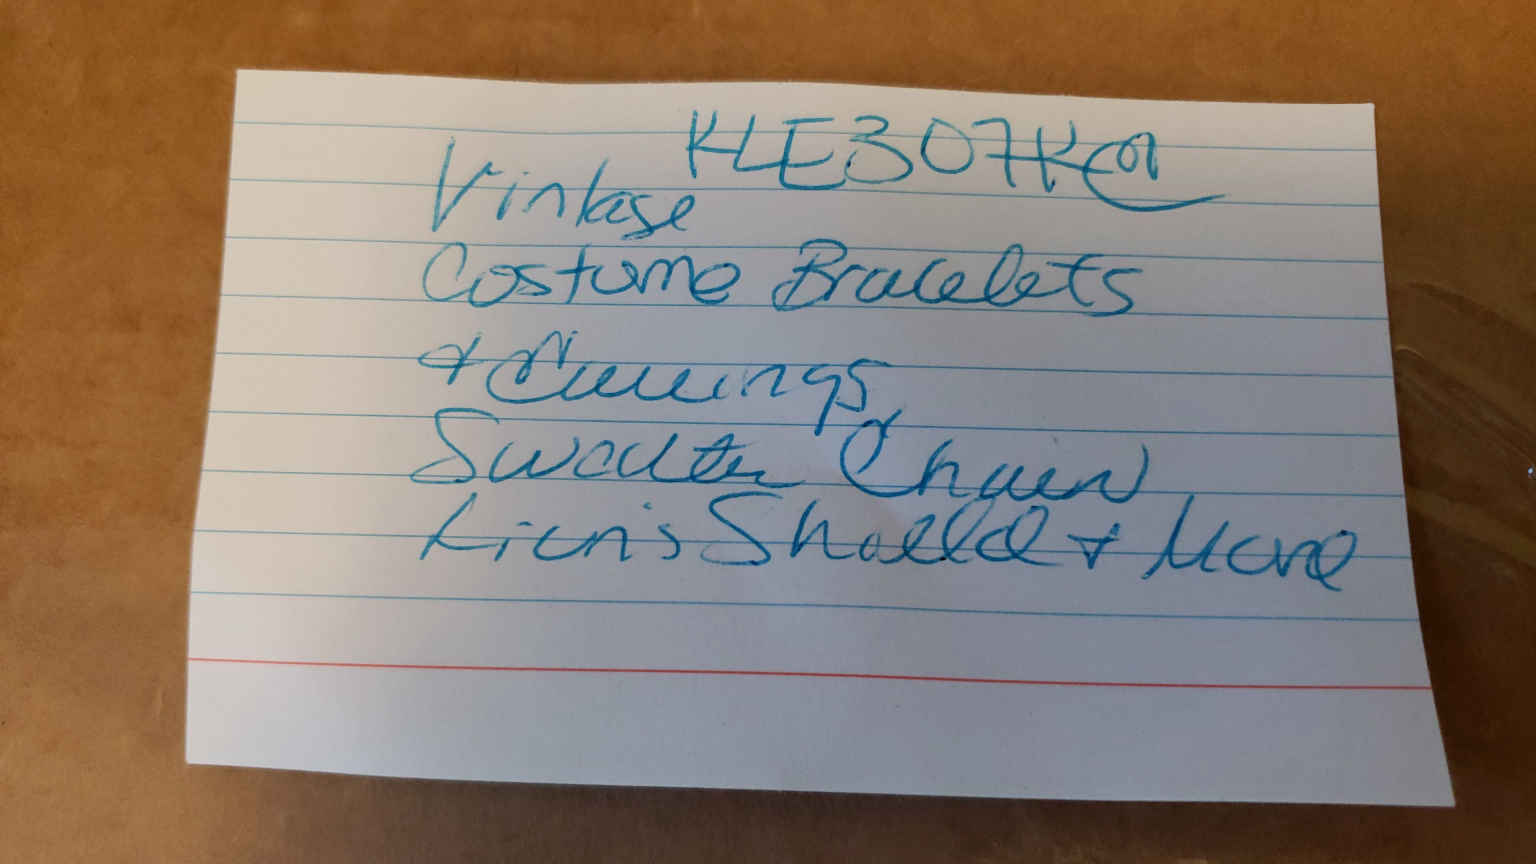 KLE307K
Vintage
Costume Bracelets
+ Earrings
Sweater Chain
Lion's Shield + More